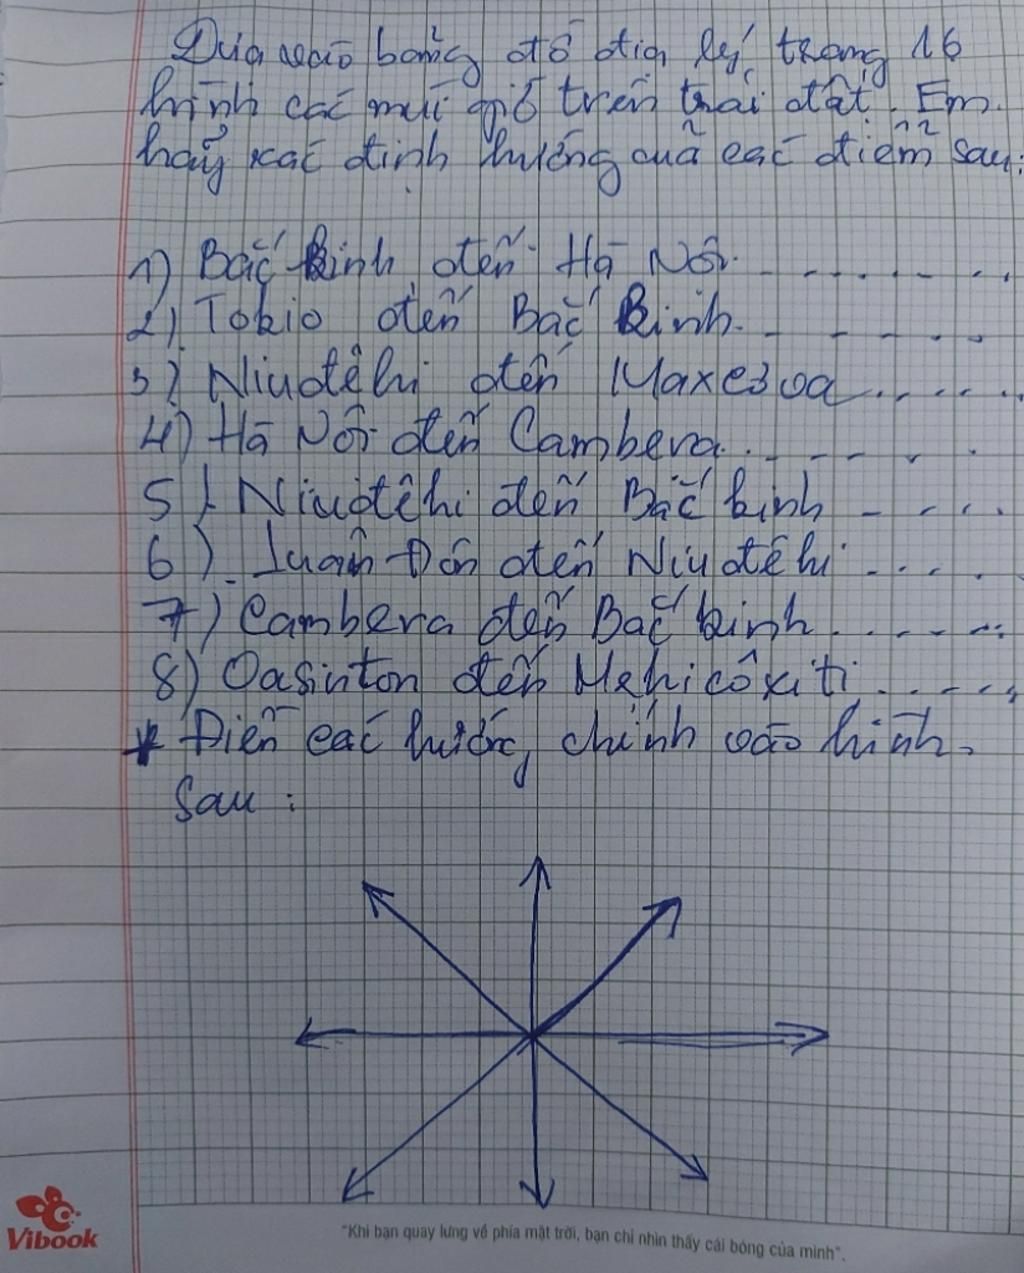 Dựa vào bảng đồ địa lý trang 16
hình các múi giờ trên trái đất. Em
hãy xác định hướng của các điểm sau:
1) Bắc Kinh đến Hà Nội.......
2) Tokio đến Bắc Kinh......
3) Niuđêhi đến Maxcơva......
4) Hà Nội đến Cambera......
5) Niuđêhi đến Bắc kinh.....
6) Luân Đôn đến Niuđêhi.....
7) Cambera đến Bắc kinh......
8) Oasinton đến Mêhicôxiti.....
* Điền các hướng chính vào hình
sau:
Vibook
"Khi bạn quay lưng về phía mặt trời, bạn chỉ nhìn thấy cái bóng của mình".